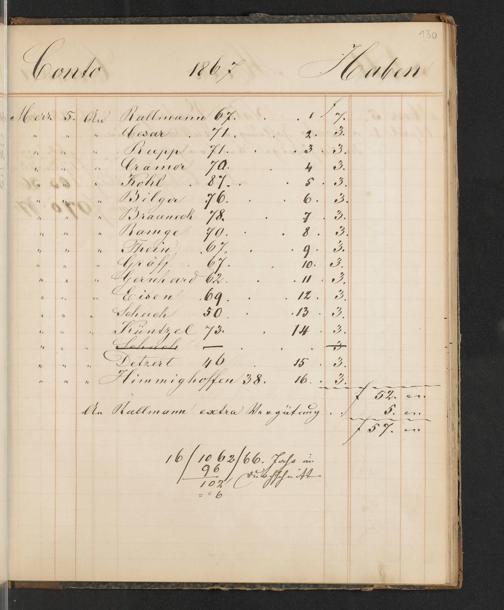 130
Conto 1867 Haben
f
Merz 5. An Rallmann 67. . . 1 7.
" " " Cesar . 71. . 2. 3.
" " " Rupp . 71. . . 3. 3.
" " " Cramer 70. . 4 3.
" " " Köhl . 87. . . 5. 3.
" " " Bilger 76. . . 6. 3.
" " " 78. . . 7 3.
" " " Ramge 70. . . 8. 3.
" " " Thein 67. . . 9. 3.
" " " Gräff . 67. . 10. 3.
" " " Gernhard 62. . . 11. 3.
" " " Eisen 69. . 12. 3.
" " " Schuch 50. . 13. 3.
" " " Küntzel 73. . 14. 3.
" " " Schuch — . . . 3
" " " Detzert 46 15. 3.
" " " Himmighoffen 38. 16. 3.
f 52. "
An Rallmann extra Vergütung . . 5. "
f 57. "
16/1062/66. Jahr im
96 Durchschnitt
102
" " 6